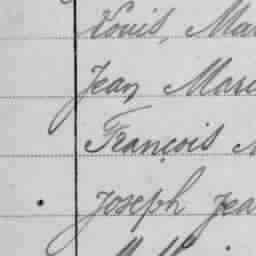 Louis, Ma
Jean Marc
François
Joseph Jea